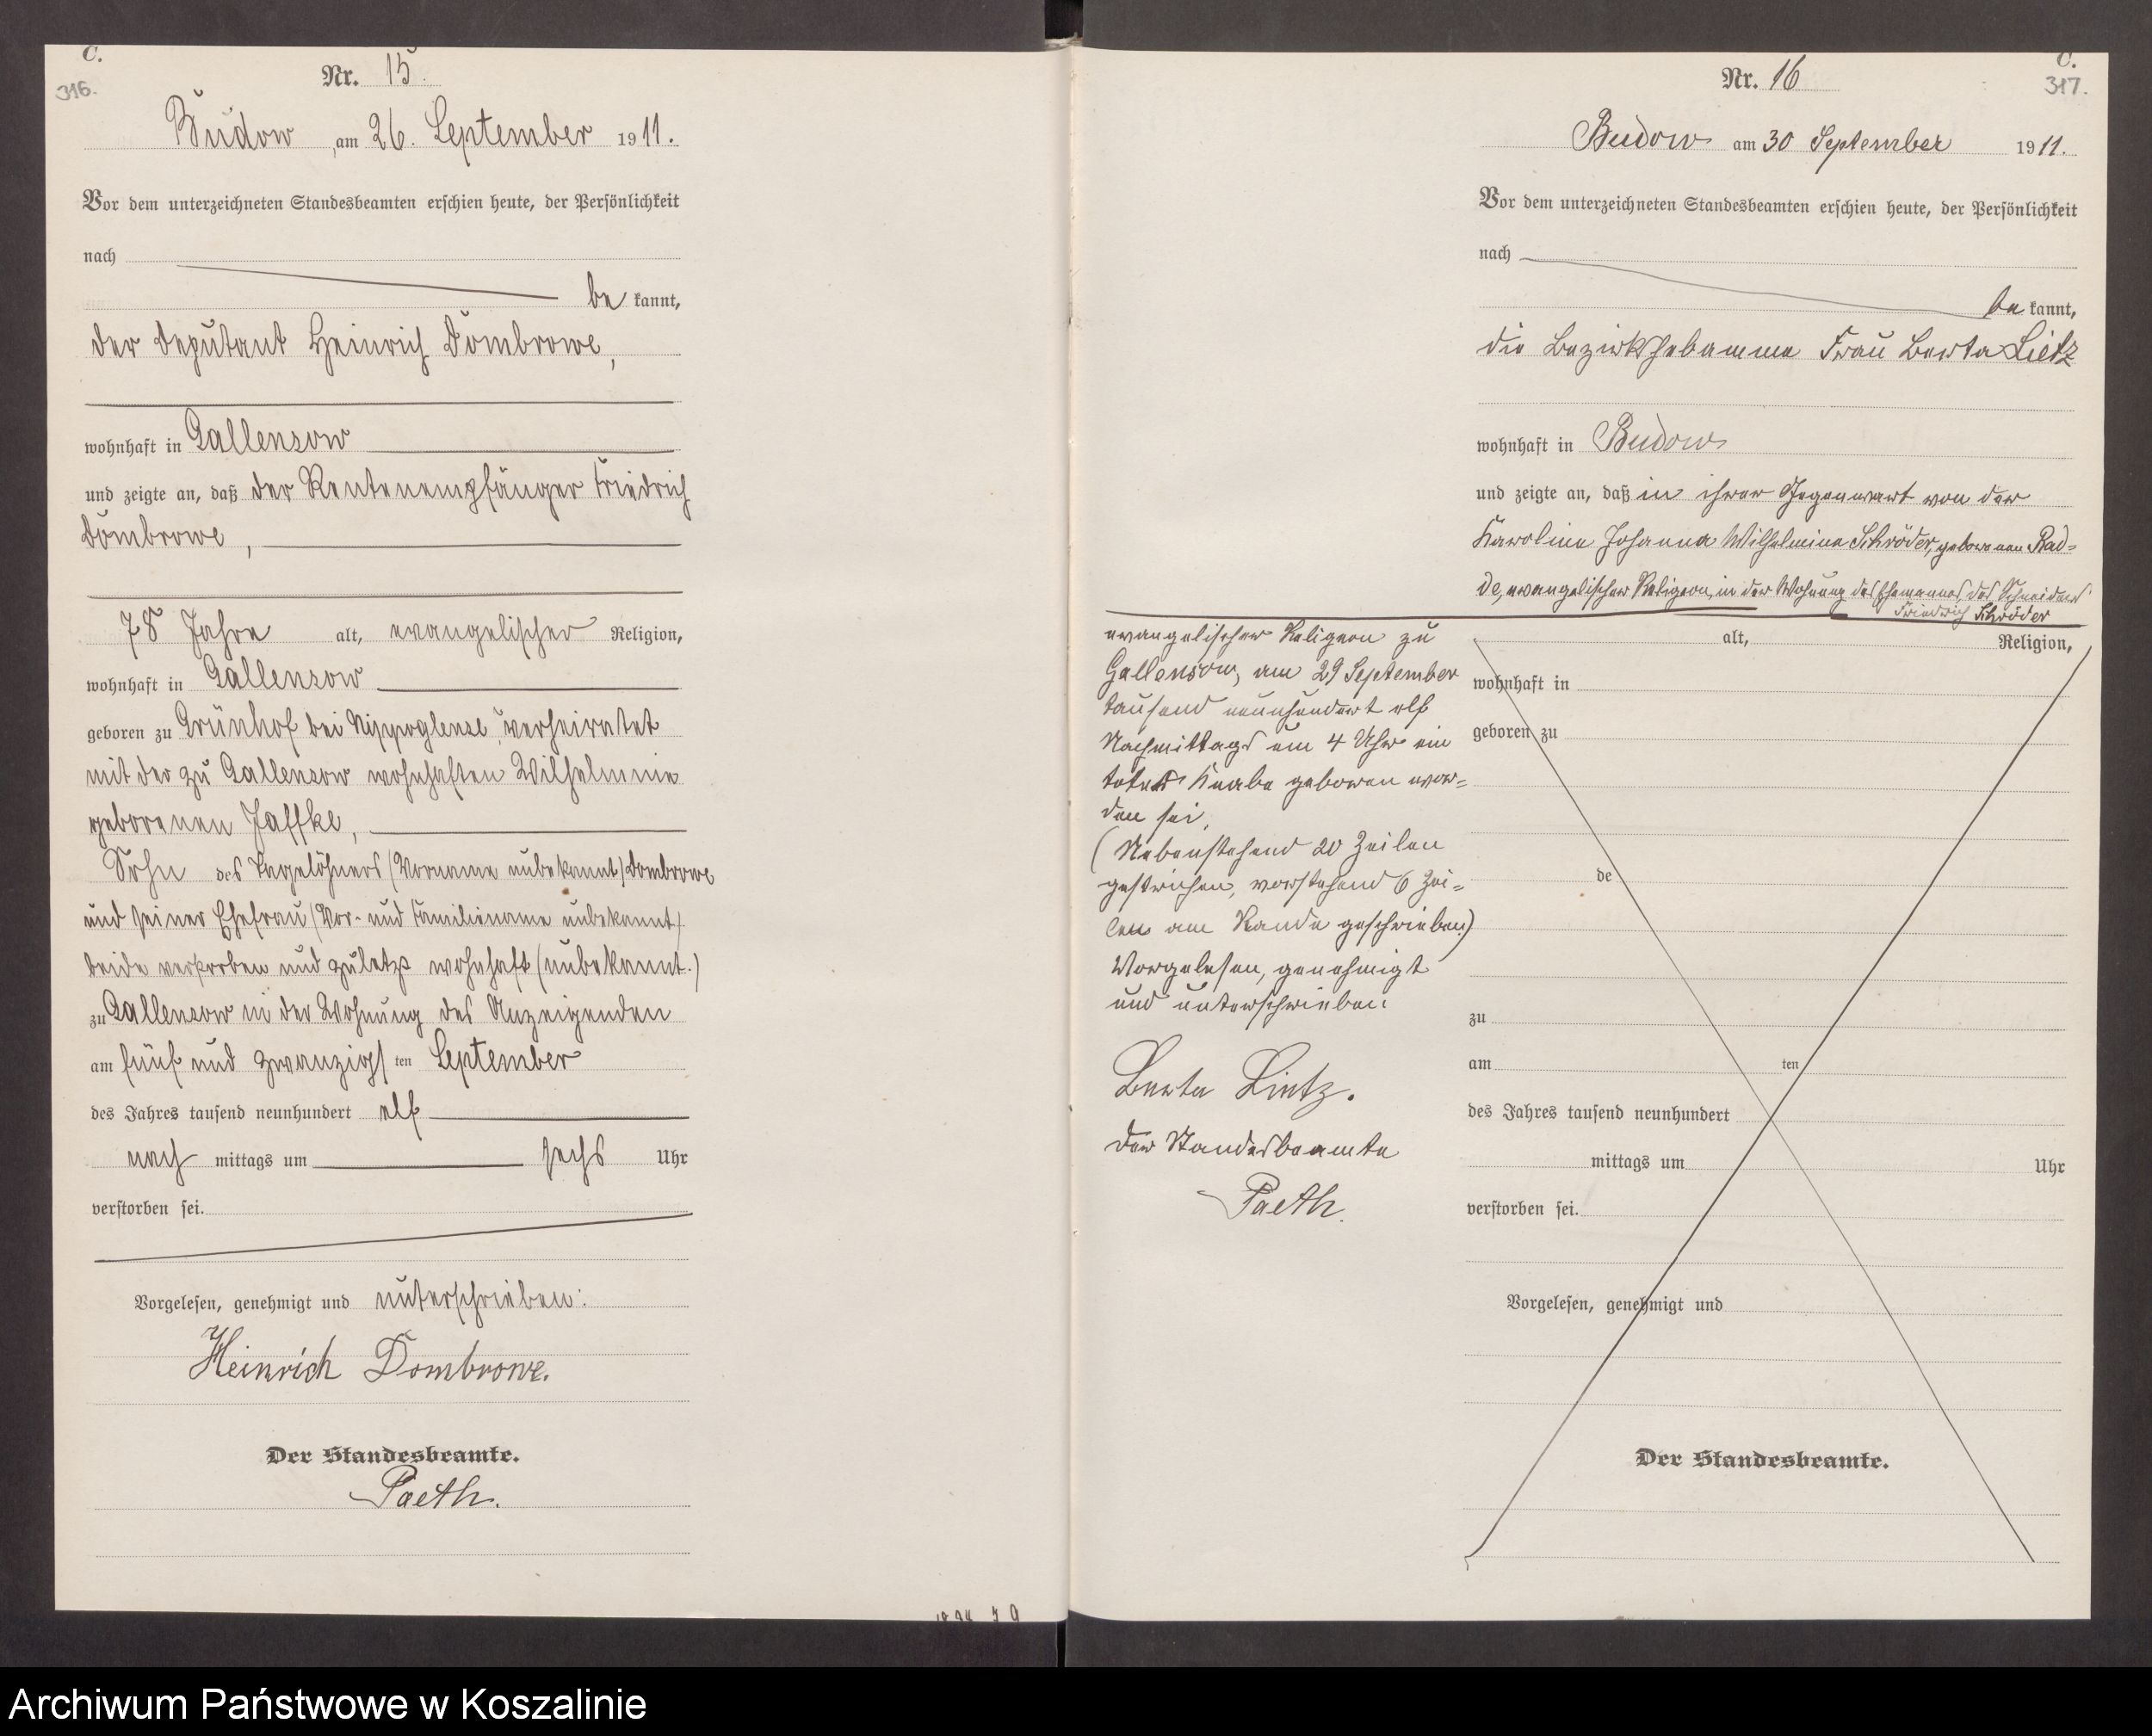 C.
316.
Nr. 15.
Budow, am 26. September 1911.
Vor dem unterzeichneten Standesbeamten erschien heute, der Persönlichkeit
nach
be kannt,
der Deputant Heinrich Dombrowe,
wohnhaft in Gallensow
und zeigte an, daß der Rentenempfänger Friedrich
Dombrowe,
78 Jahre alt, evangelischer Religion,
wohnhaft in Gallensow
geboren zu Grünhof bei Nippoglense, verheiratet
mit der zu Gallensow wohnhaften Wilhelmine
geborenen Jaffke,
Sohn des Tagelöhners (Vorname unbekannt) Dombrowe
und seiner Ehefrau (Vor- und Familienname unbekannt)
beide verstorben und zuletzt wohnhaft (unbekannt.)
zu Gallensow in der Wohnung des Anzeigenden
am fünf und zwanzigsten September
des Jahres tausend neunhundert elf
nach mittags um sechs Uhr
verstorben sei.
Vorgelesen, genehmigt und unterschrieben:
Heinrich Dombrowe.
Der Standesbeamte.
Paeth.
C.
317.
Nr. 16
Budow am 30 September 1911.
Vor dem unterzeichneten Standesbeamten erschien heute, der Persönlichkeit
nach
be kannt,
die Bezirkshebamme Frau Berta Lietz
wohnhaft in Budow
und zeigte an, daß in ihrer Gegenwart von der
Karoline Johanna Wilhelmine Schröder, geborenen Rad=
de, evangelischer Religion, in der Wohnung des Ehemannes, des Schneiders
Friedrich Schröder
evangelischer Religion zu
Gallensow, am 29 September
tausend neunhundert elf
Nachmittags um 4 Uhr ein
totes Knabe geboren wor=
den sei.
(Nebenstehend 20 Zeilen
gestrichen, vorstehend 6 Zei=
len am Rande geschrieben)
Vorgelesen, genehmigt
und unterschrieben:
Berta Lietz.
Der Standesbeamte
Paeth.
alt, Religion,
wohnhaft in
geboren zu
de
zu
am ten
des Jahres tausend neunhundert
mittags um Uhr
verstorben sei.
Vorgelesen, genehmigt und
Der Standesbeamte.
Archiwum Państwowe w Koszalinie